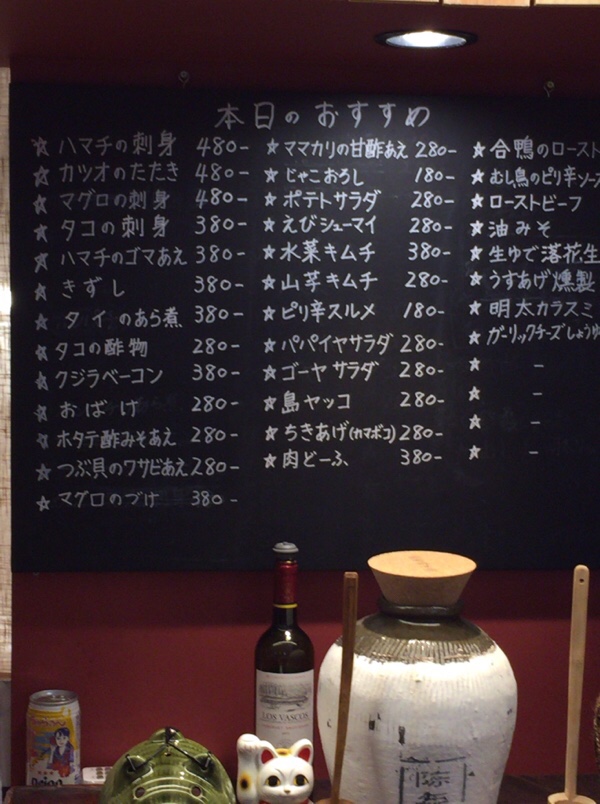 本日のおすすめ
☆ ハマチの刺身 480-
☆ カツオのたたき 480-
☆ マグロの刺身 480-
☆ タコの刺身 380-
☆ ハマチのゴマあえ 380-
☆ きずし 380-
☆ タイのあら煮 380-
☆ タコの酢物 280-
☆ クジラベーコン 380-
☆ おばけ 280-
☆ ホタテ酢みそあえ 280-
☆ つぶ貝のワサビあえ 280-
☆ マグロのづけ 380-
☆ ママカリの甘酢あえ 280-
☆ じゃこおろし 180-
☆ ポテトサラダ 280-
☆ えびシューマイ 280-
☆ 水菜キムチ 380-
☆ 山芋キムチ 280-
☆ ピリ辛スルメ 180-
☆ パパイヤサラダ 280-
☆ ゴーヤサラダ 280-
☆ 島ヤッコ 280-
☆ ちきあげ(カマボコ) 280-
☆ 肉どーふ 380-
☆ 合鴨のロースト
☆ むし鳥のピリ辛ソース
☆ ローストビーフ
☆ 油みそ
☆ 生ゆで落花生
☆ うすあげ燻製
☆ 明太カラスミ
☆ ガーリックチーズしょうゆ
☆ -
☆ -
☆ -
☆ -
LOS VASCOS